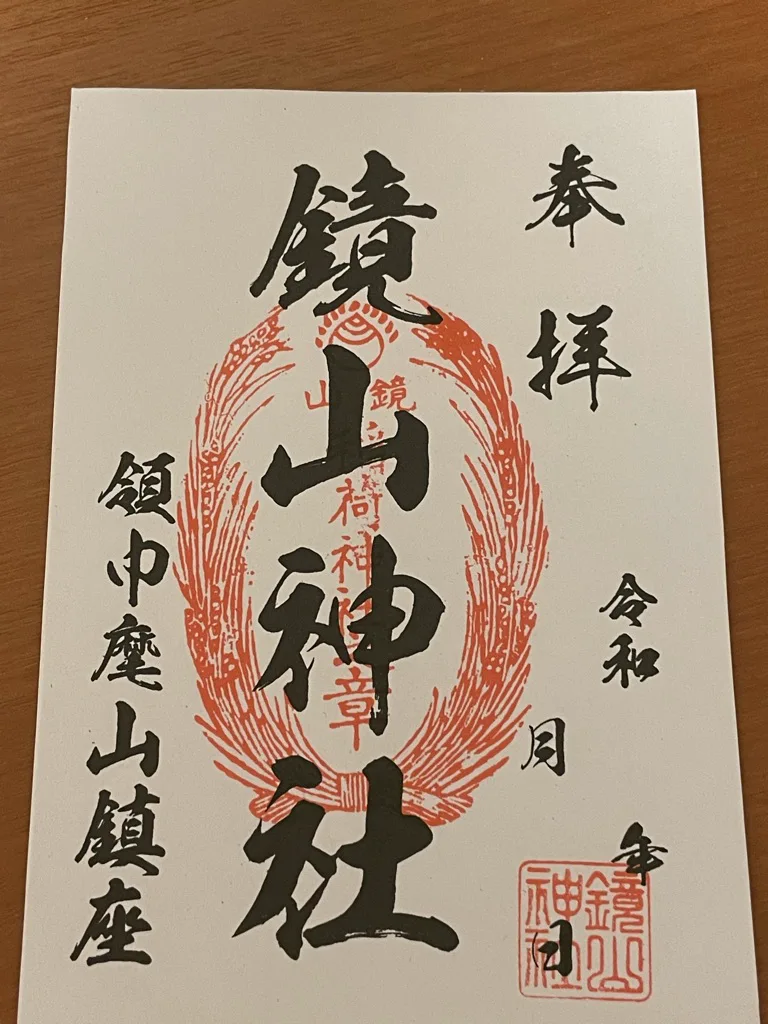 奉拝
令和 年
月 日
鏡山神社
領巾麾山鎮座
鏡山
稲荷神社
章
鏡山
神社